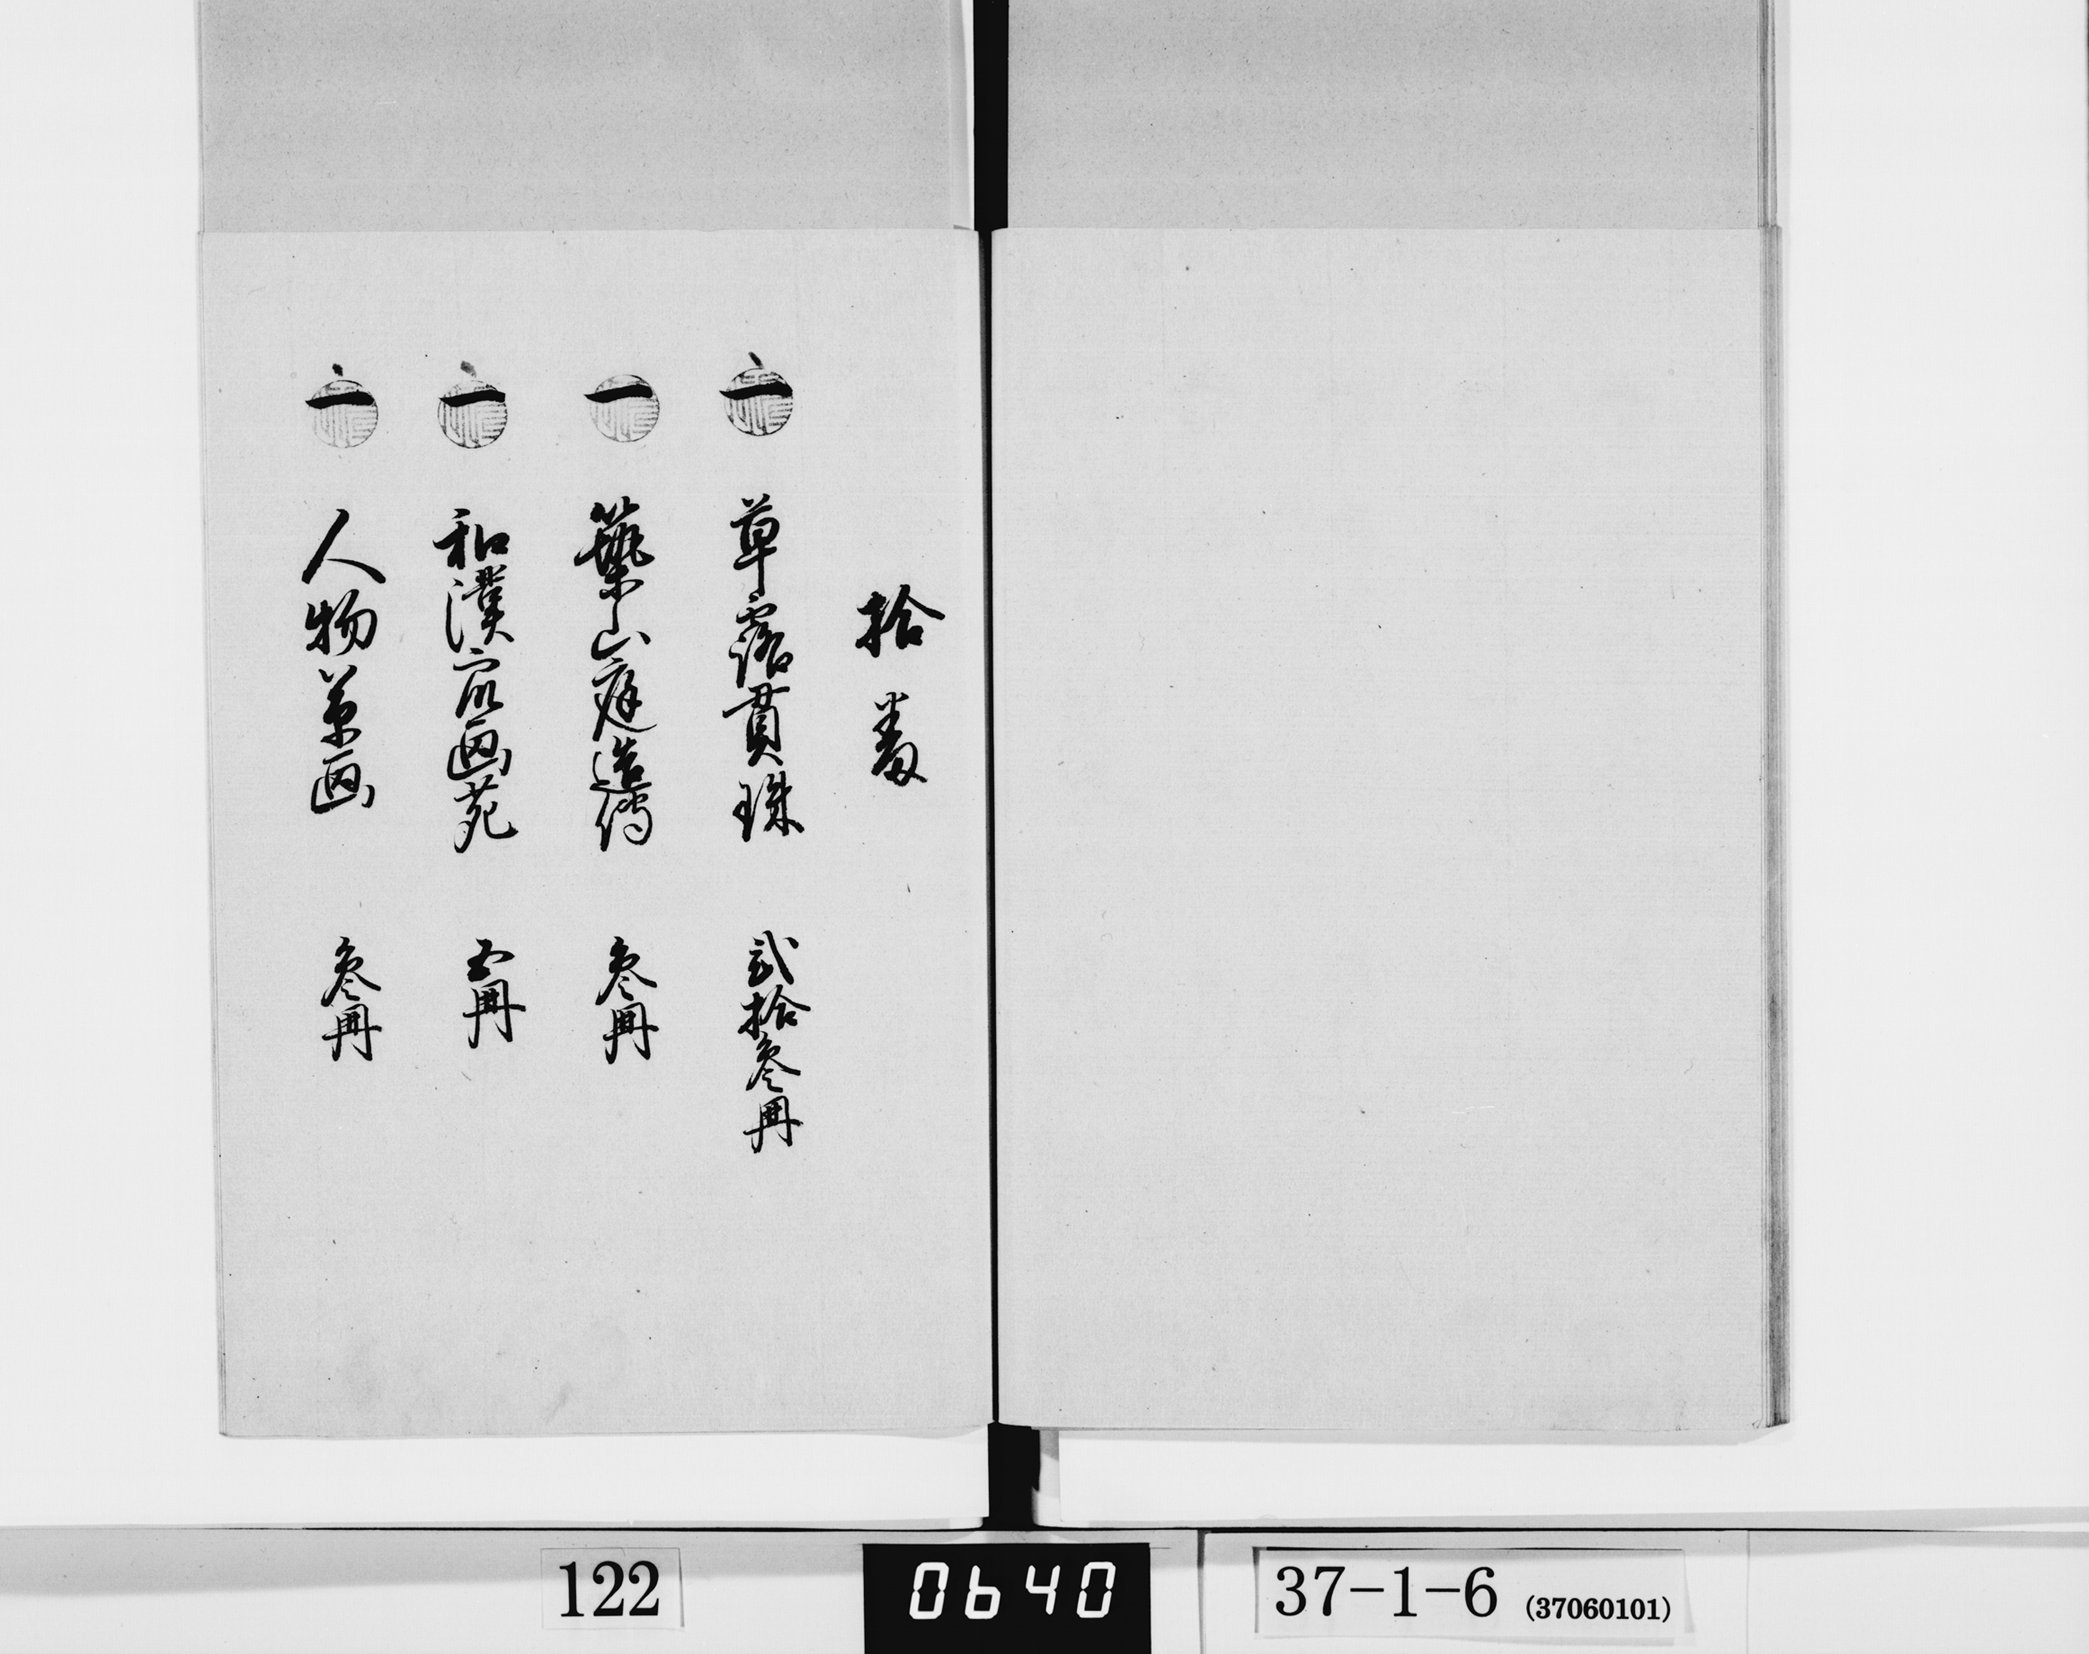 拾番
一 草露貫珠 弐拾参冊
一 築山庭造傳 参冊
一 和漢名画苑 五冊
一 人物草画 参冊
122
0640
37-1-6 (37060101)